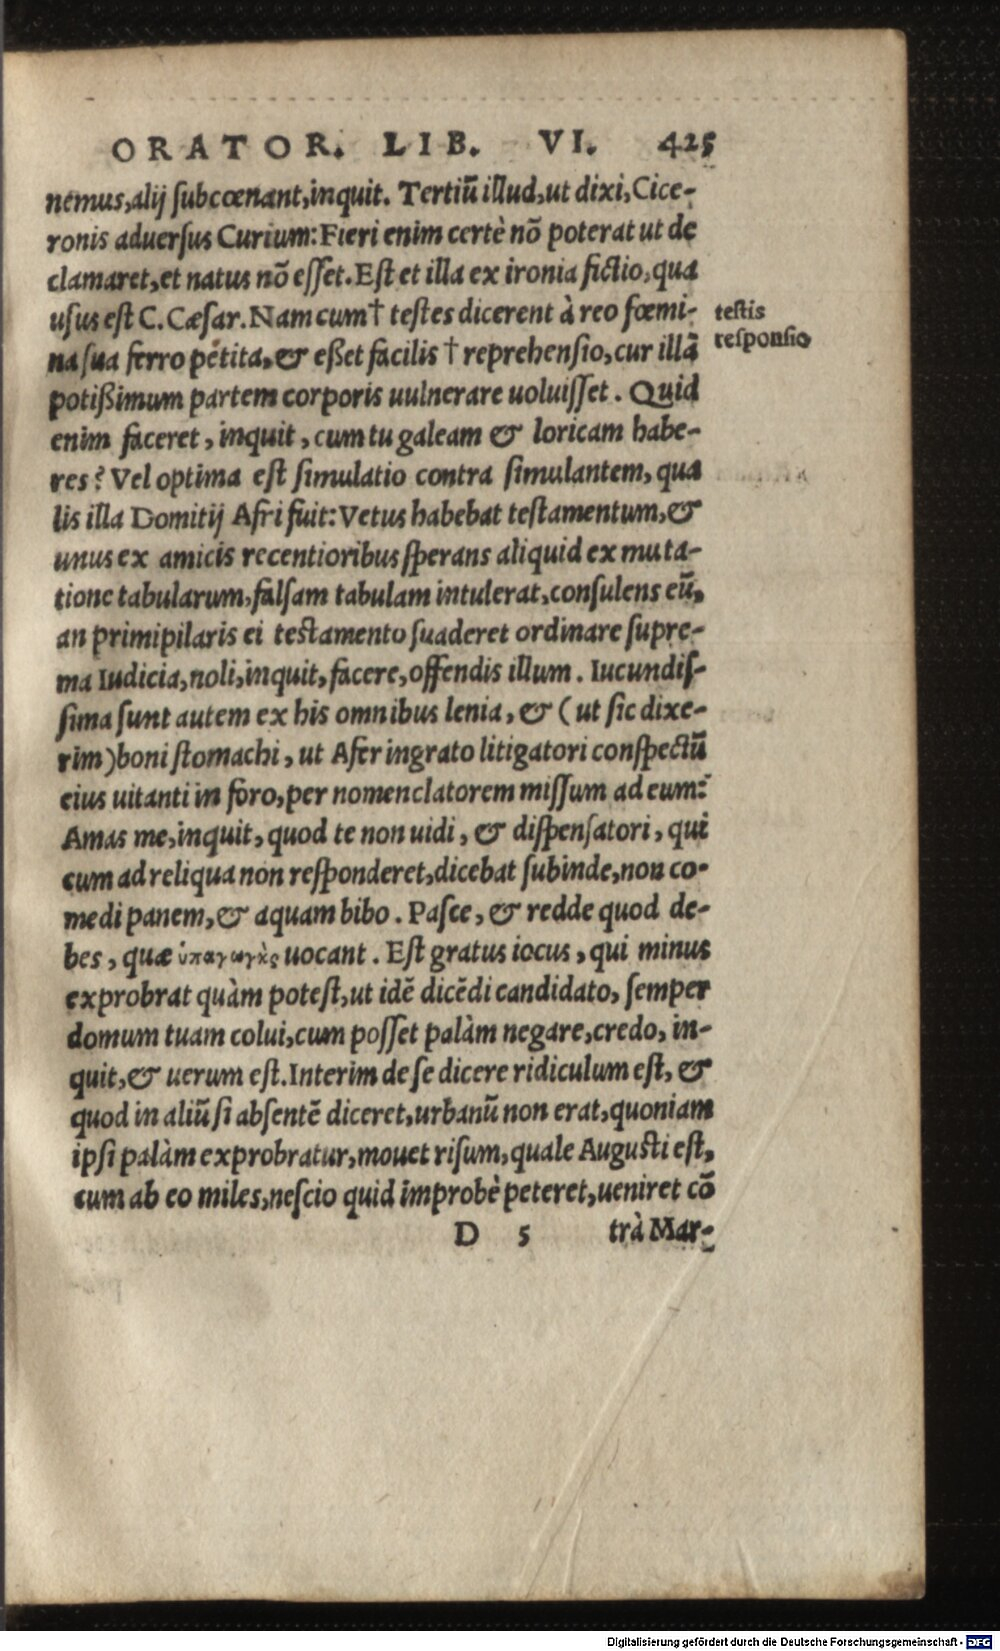 ORATOR. LIB. VI. 425
nemus,alij ſubcœnant,inquit. Tertiū illud,ut dixi,Cice-
ronis aduerſus Curium:Fieri enim certè nō poterat ut de
clamaret,et natus nō eſſet.Eſt et illa ex ironia fictio,qua
uſus eſt C.Cæſar.Nam cum† teſtes dicerent à reo fœmi-
na ſua ferro petita,& eßet facilis † reprehenſio,cur illā
potißimum partem corporis uulnerare uoluiſſet. Quid
enim faceret, inquit, cum tu galeam & loricam habe-
res? Vel optima eſt ſimulatio contra ſimulantem, qua
lis illa Domitij Afri fuit:Vetus habebat teſtamentum,&
unus ex amicis recentioribus ſperans aliquid ex muta-
tione tabularum,falſam tabulam intulerat,conſulens eū,
an primipilaris ei teſtamento ſuaderet ordinare ſupre-
ma Iudicia,noli,inquit,facere,offendis illum. Iucundiſ-
ſima ſunt autem ex his omnibus lenia, & (ut ſic dixe-
rim)boni ſtomachi, ut Afer ingrato litigatori conſpectū
eius uitanti in foro,per nomenclatorem miſſum ad eum:
Amas me,inquit, quod te non uidi, & diſpenſatori, qui
cum ad reliqua non reſponderet,dicebat ſubinde,non co-
medi panem,& aquam bibo. Paſce, & redde quod de-
bes, quæ ὑπαγωγὰς uocant. Eſt gratus iocus, qui minus
exprobrat quàm poteſt,ut idē dicēdi candidato, ſemper
domum tuam colui,cum poſſet palàm negare,credo, in-
quit,& uerum eſt.Interim de ſe dicere ridiculum eſt, &
quod in aliū ſi abſentē diceret,urbanū non erat,quoniam
ipſi palàm exprobratur,mouet riſum,quale Auguſti eſt,
cum ab eo miles,neſcio quid improbè peteret,ueniret cō
D 5 trà Mar-
teſtis
reſponſio
Digitalisierung gefördert durch die Deutsche Forschungsgemeinschaft - DFG